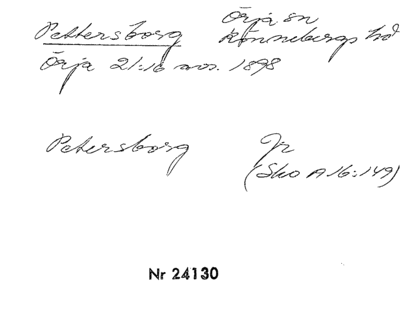 Pettersborg Örja sn
Rönnebergs hd
Örja 21:16 avs. 1898
Petersborg Jr
(Sko A 16:149)
Nr 24130